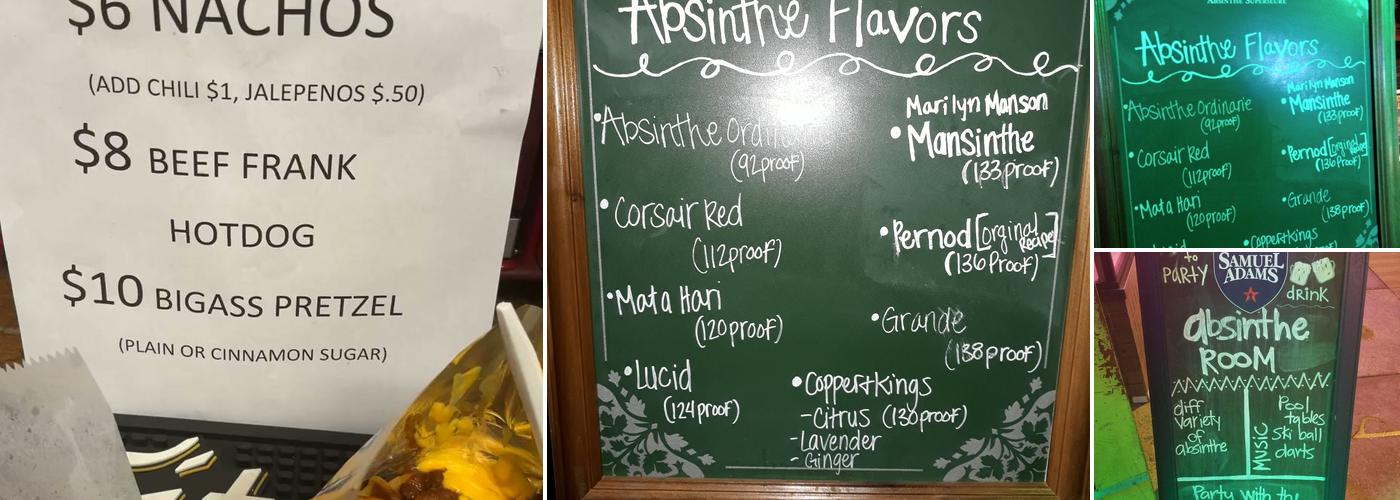 $6 NACHOS
(ADD CHILI $1, JALEPENOS $.50)
$8 BEEF FRANK
HOTDOG
$10 BIGASS PRETZEL
(PLAIN OR CINNAMON SUGAR)
Absinthe Flavors
•Absinthe Ordinaire
(92proof)
•Corsair Red
(112proof)
•Mata Hari
(120proof)
•Lucid
(124proof)
Marilyn Manson
•Mansinthe
(133proof)
•Pernod [orginal Recipe]
(136 Proof)
•Grande
(138proof)
•Coppertkings
-Citrus (130proof)
-Lavender
-Ginger
ABSINTHE SUPERIEURE
Absinthe Flavors
•Absinthe Ordinarie
(92proof)
•Corsair Red
(112proof)
•Mata Hari
(120proof)
Marilyn Manson
•Mansinthe
(133proof)
•Pernod [orginal Recipe]
(136 Proof)
•Grande
(138proof)
•Coppertkings
to
PARTY
SAMUEL
ADAMS
drink
absinthe
ROOM
diff
Variety
of
absinthe
MUSIC
Pool
tables
Ski ball
darts
Party with th